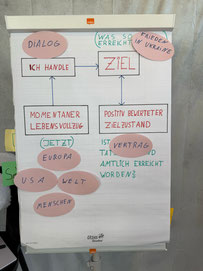 DIALOG
(WAS SO
ERREICHT
FRIEDEN
IN UKRAINE
ICH HANDLE
ZIEL
MOMENTANER
LEBENSVOLLZUG
POSITIV BEWERTETER
ZIELZUSTAND
(JETZT)
IST
VERTRAG
TAT
ND
AMTLICH ERREICHT
WORDEN?
EUROPA
USA
WELT
MENSCHEN